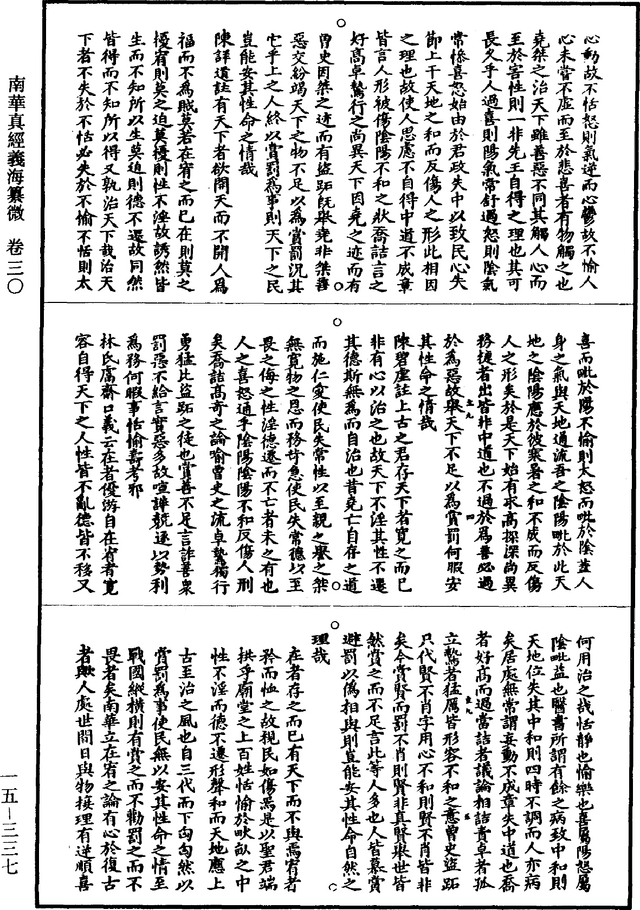 南華真經義海纂微 卷三〇
一五—三三七
心動故不恬怒則氣逆而心鬱故不愉人
心未嘗不虛而至於悲喜者有物觸之也
堯桀之治天下雖善惡不同其觸人心而
至於害性則一非先王自得之理也其可
長久乎人過喜則陽氣常舒過怒則陰氣
常慘喜怒始由於君政失中以致民心失
節上干天地之和而反傷人之形此相因
之理也故使人思慮不自得中道不成章
皆言人形被傷陰陽不和之狀喬詰言之
好高卓鷙行之尚異天下因堯之迹而有
曾史因桀之迹而有盜跖既舉堯非桀善
惡交紛竭天下之物不足以為賞罰況其
它乎上之人終以賞罰為事則天下之民
豈能安其性命之情哉
陳詳道註有天下者欲開天而不開人為
福而不為賊莫若在宥之而已在則莫之
擾宥則莫之迫莫擾則性不淫故誘然皆
生而不知所以生莫迫則德不遷故同然
皆得而不知所以得又孰治天下哉治天
下者不失於不恬必失於不愉不恬則太
喜而毗於陽不愉則太怒而毗於陰蓋人
身之氣與天地通流吾之陰陽毗於此天
地之陰陽應於彼寒暑之和不成而反傷
人之形矣於是天下始有求高探深尚異
務捷者出皆非中道也不過於為善必過
於為惡故舉天下不足以為賞罰何暇安
其性命之情哉
陳碧虛註上古之君存天下者寬之而已
非有心以治之也故天下不淫其性不遷
其德斯無為而自治也昔堯亡自存之道
而施仁愛使民失常性以至親之譽之桀
無寬物之恩而務苛急使民失常德以至
畏之侮之性淫德遷而不亡者未之有也
人之喜怒通乎陰陽陰陽不和反傷人刑
矣喬詰高奇之論喻曾史之流卓鷙獨行
勇猛比盜跖之徒也賞善不足言詐善眾
罰惡不給言實惡多故喧譁競逐以勢利
為務何暇事恬愉壽考邪
林氏鬳齋口義云在者優游自在宥者寬
容自得天下之人性皆不亂德皆不移又
何用治之哉恬靜也愉樂也喜屬陽怒屬
陰毗益也醫書所謂有餘之病致中和則
天地位失其中和則四時不調而人亦病
矣居處無常謂妄動不成章失中道也喬
者好高而過當詰者議論相詰責卓者孤
立鷙者猛厲皆形容不和之意曾史盜跖
只代賢不肖字用心不和則賢不肖皆非
矣今賞賢而罰不肖則賢非真賢舉世皆
然賞之而不足言此等人多也人皆慕賞
避罰以偽相與則豈能安其性命自然之
理哉
在者存之而已有天下而不與焉宥者
矜而恤之故視民如傷焉是以聖君端
拱乎廟堂之上百姓恬愉於畎畝之中
性不淫而德不遷形聲和而天地應上
古至治之風也自三代而下匈匈然以
賞罰為事使民無以安其性命之情至
戰國縱橫則有賞之而不勸罰之而不
畏者矣南華立在宥之論有心於復古
者歟人處世間日與物接理有逆順喜